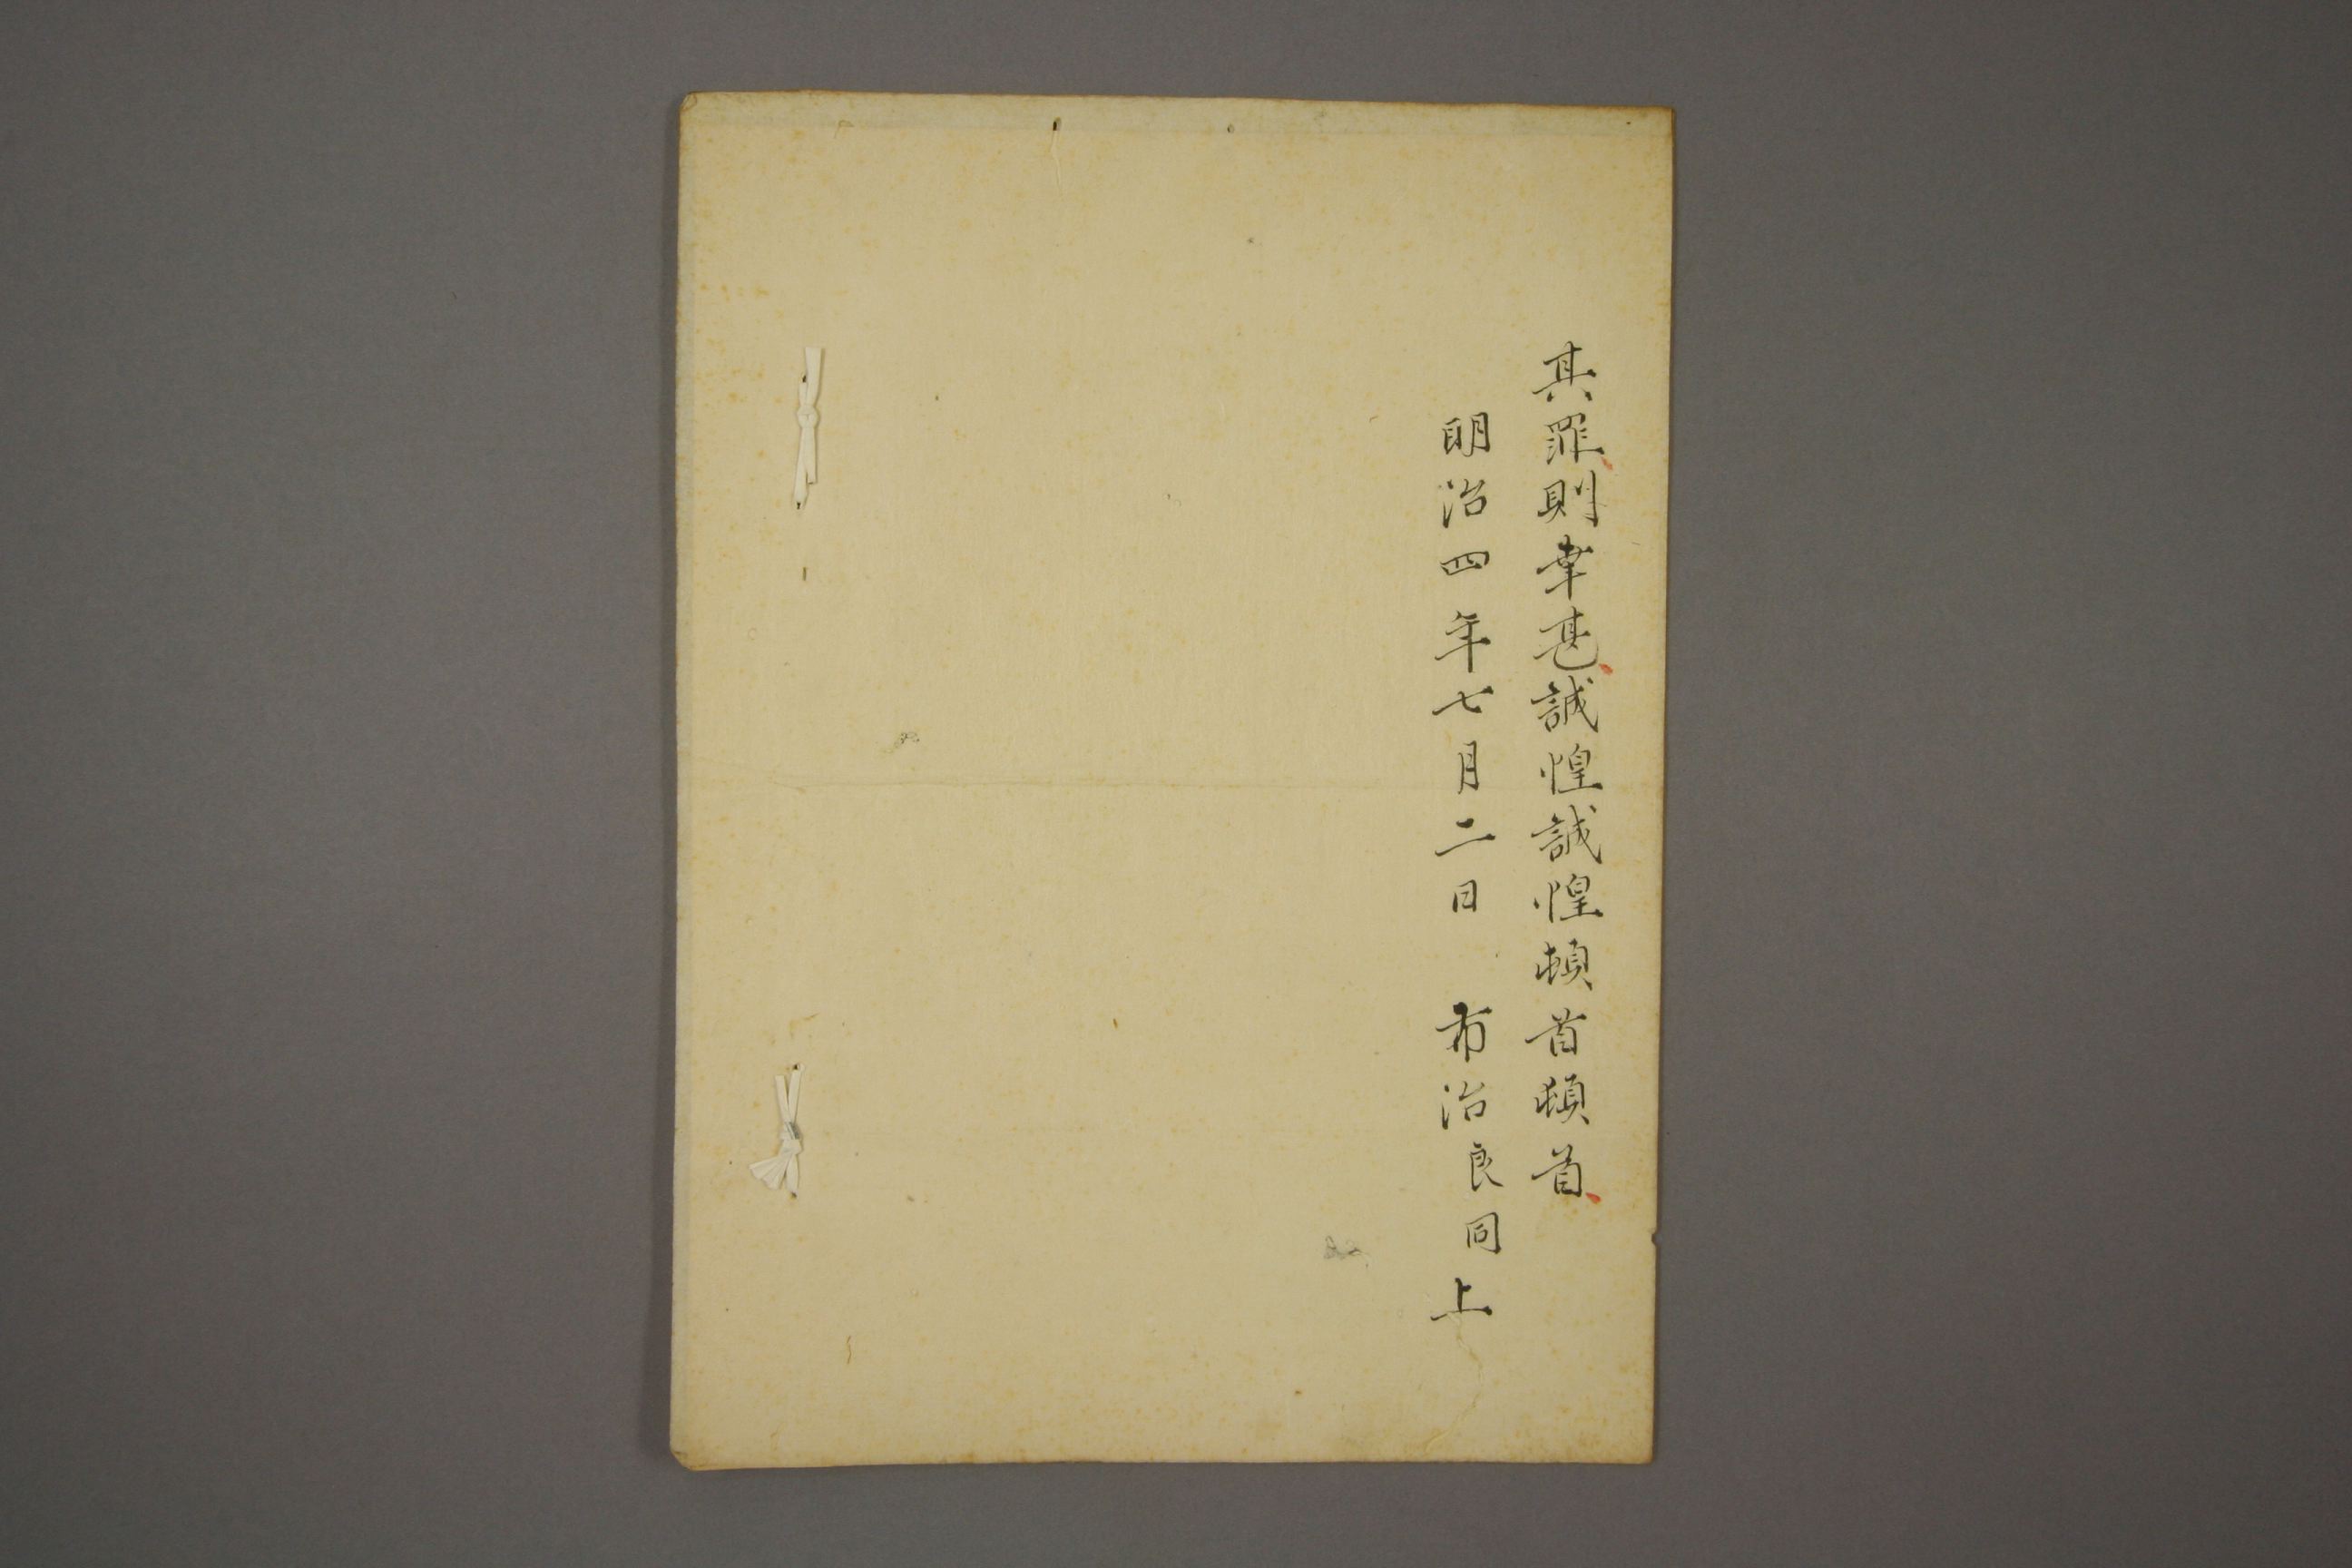 其罪、則幸甚、誠惶誠惶頓首頓首、
明治四年七月二日 布治良同上